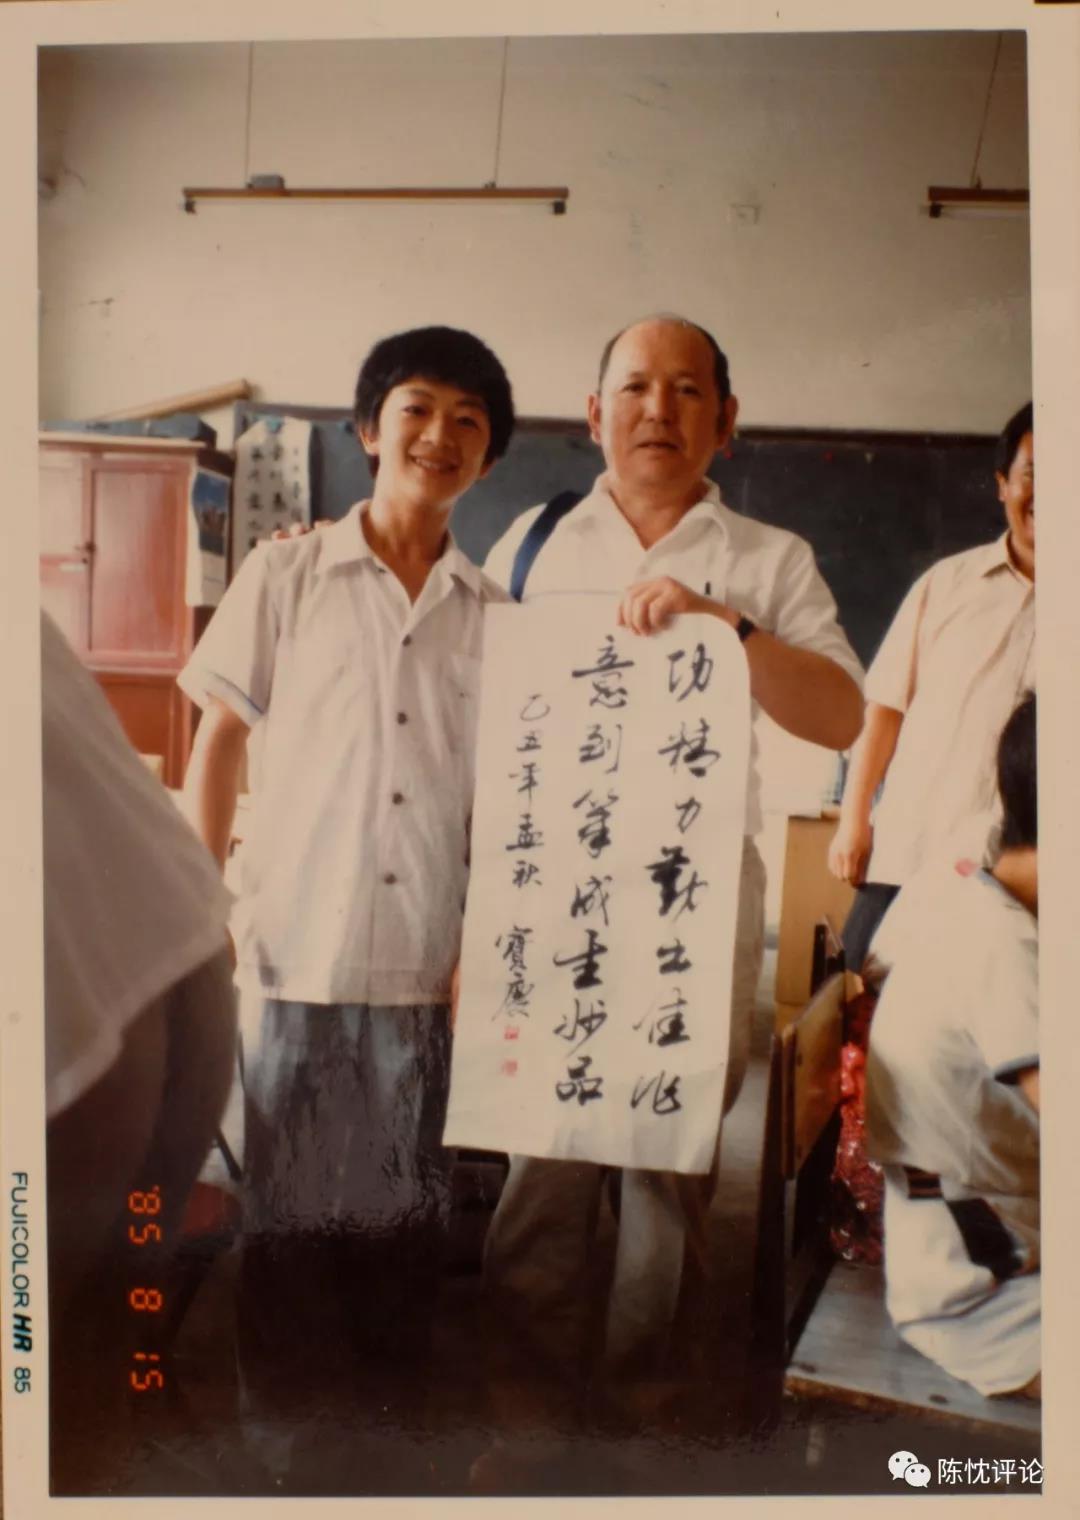 功精力勤出佳作
意到筆成生妙品
乙丑年孟秋 寶慶
'85 8 15
FUJICOLOR HR 85
陈忱评论